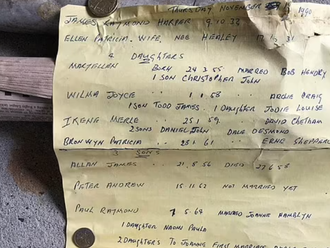 THURSDAY NOVEMBER 1990
JAMES RAYMOND HARPER 9.10.22
ELLEN PATRICIA, WIFE, NEE HEALEY 31
DAUGHTERS
MARYELLEN BORN 24 3 55 MARRIED BOB HENDRY
1 SON CHRISTOPHER JOHN
WILMA JOYCE 1 58 ARCHIE CRAIG
1 SON TODD JAMES 1 DAUGHTER JODIE LOUISE
IRENE MERLE 25.1.59 DAVID CHETHAM
2 SONS DANIEL JOHN DALE DESMOND
BRONWYN PATRICIA 28.1.61 ERNIE
SONS
ALLAN JAMES 21.8.56 DIED 6.58
PETER ANDREW 15.11.62 NOT MARRIED YET
PAUL RAYMOND 5.69 MARRIED JOANNE HAMBLYN
1 DAUGHTER NAOMI PAULA
2 DAUGHTERS TO JOANNE FIRST MARRIAGE